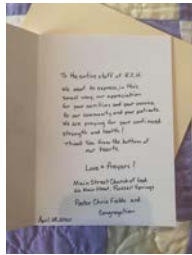 To the entire staff of R.R.H.
We want to express, in this
small way, our appreciation
for your sacrifice and your service
to our community and your patients.
We are praying for your continued
strength and health!
Thank you from the bottom of
our hearts.
Love & Prayers!
Main Street Church of God
Main Street, Springs
Pastor Chris Fields and
Congregation
April 28, 2020